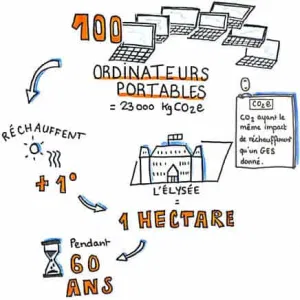 100
ORDINATEURS
PORTABLES
= 23 000 kgCO2e
CO2e
CO2 ayant le
même impact
de réchauffement
qu'un GES
donné.
RÉCHAUFFENT
+ 1°
L'ÉLYSÉE
=
1 HECTARE
Pendant
60
ANS